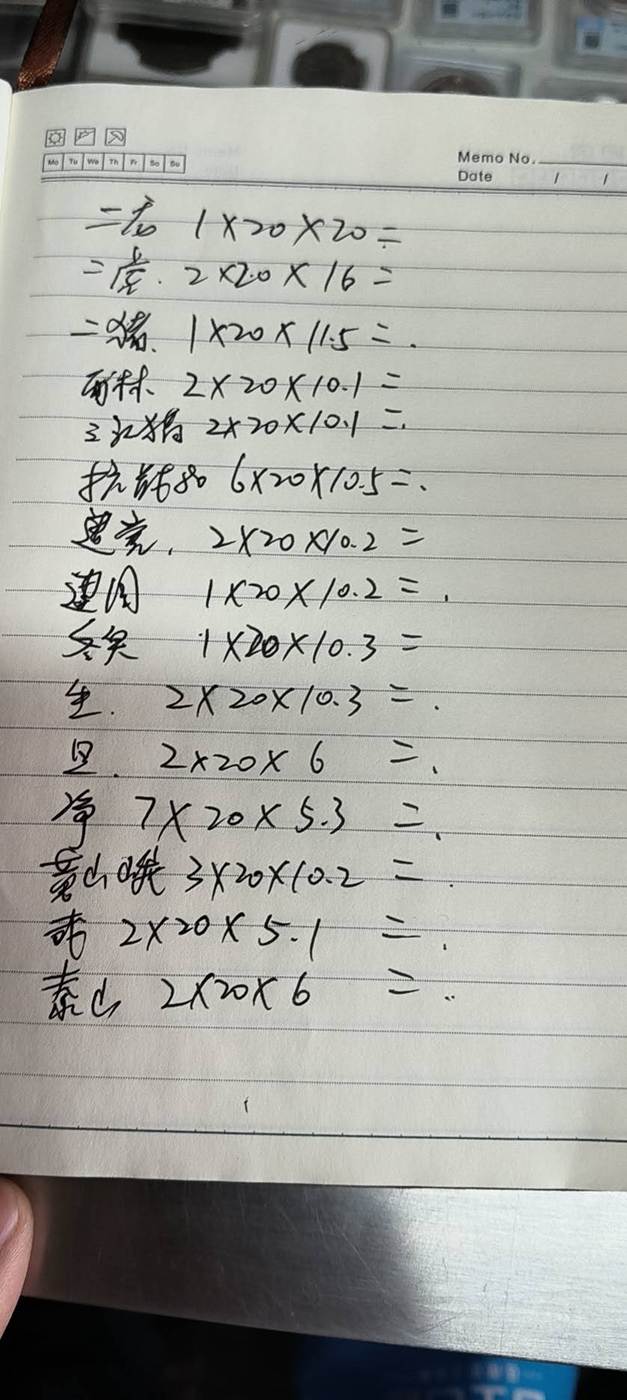 Mo Tu We Th Fr Sa Su
Memo No.
Date / /
二龙 1×20×20=
二虎. 2×20×16=
二猪. 1×20×11.5=.
2×20×10.1=
2×20×10.1=.
抗战80 6×20×10.5=.
2×20×10.2=
建国 1×20×10.2=.
冬奥 1×20×10.3=
生. 2×20×10.3=.
2×20×6 =.
7×20×5.3 =.
黄山峨 3×20×10.2 =.
2×20×5.1 =.
泰山 2×20×6 =..